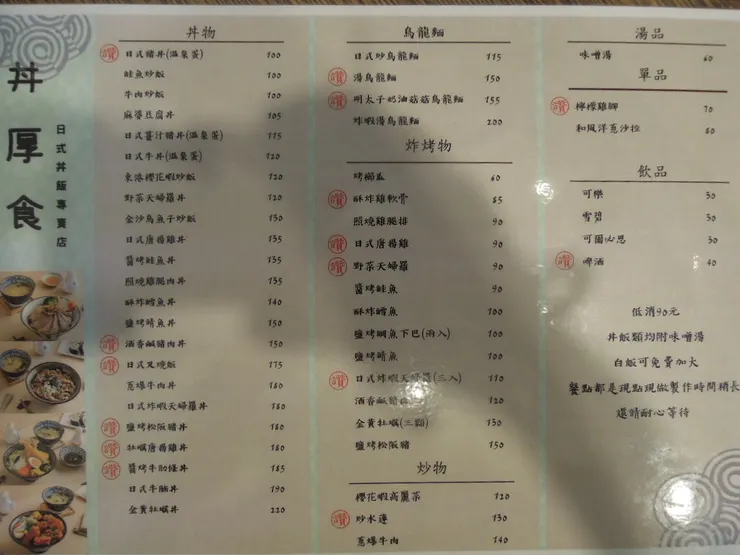 丼厚食
日式丼飯專賣店
丼物
讚 日式豬丼(溫泉蛋) 100
鮭魚炒飯 100
牛肉炒飯 100
麻婆豆腐丼 105
日式薑汁豬丼(溫泉蛋) 115
日式牛丼(溫泉蛋) 120
東港櫻花蝦炒飯 120
野菜天婦羅丼 120
金沙烏魚子炒飯 130
日式唐揚雞丼 135
醬烤鮭魚丼 135
照燒雞腿肉丼 135
酥炸鱈魚丼 140
鹽烤鯖魚丼 150
讚 酒香鹹豬肉丼 150
讚 日式叉燒飯 175
蔥爆牛肉丼 180
日式炸蝦天婦羅丼 180
讚 鹽烤松阪豬丼 180
讚 牡蠣唐揚雞丼 180
讚 醬烤牛肋條丼 185
日式牛腩丼 190
金黃牡蠣丼 220
烏龍麵
日式炒烏龍麵 115
讚 湯烏龍麵 150
讚 明太子奶油菇菇烏龍麵 155
炸蝦湯烏龍麵 200
炸烤物
烤櫛瓜 60
讚 酥炸雞軟骨 85
照燒雞腿排 90
讚 日式唐揚雞 90
讚 野菜天婦羅 90
醬烤鮭魚 90
酥炸鱈魚 100
鹽烤鯛魚下巴(兩入) 100
鹽烤鯖魚 100
讚 日式炸蝦天婦羅(三入) 110
酒香鹹豬 120
金黃牡蠣(三顆) 130
鹽烤松阪豬 150
炒物
櫻花蝦高麗菜 120
讚 炒水蓮 130
蔥爆牛肉 140
湯品
味噌湯 60
單品
讚 檸檬雞腳 70
和風洋蔥沙拉 80
飲品
可樂 30
雪碧 30
可爾必思 30
讚 啤酒 40
低消90元
丼飯類均附味噌湯
白飯可免費加大
餐點都是現點現做製作時間稍長
還請耐心等待